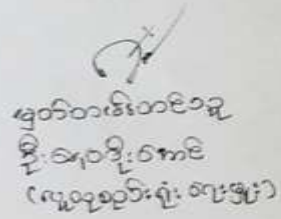 မှတ်တမ်းတင်သူ
ဦးရေဝဒိုးအောင်
(လူထုစည်းရုံးရေးမှူး)